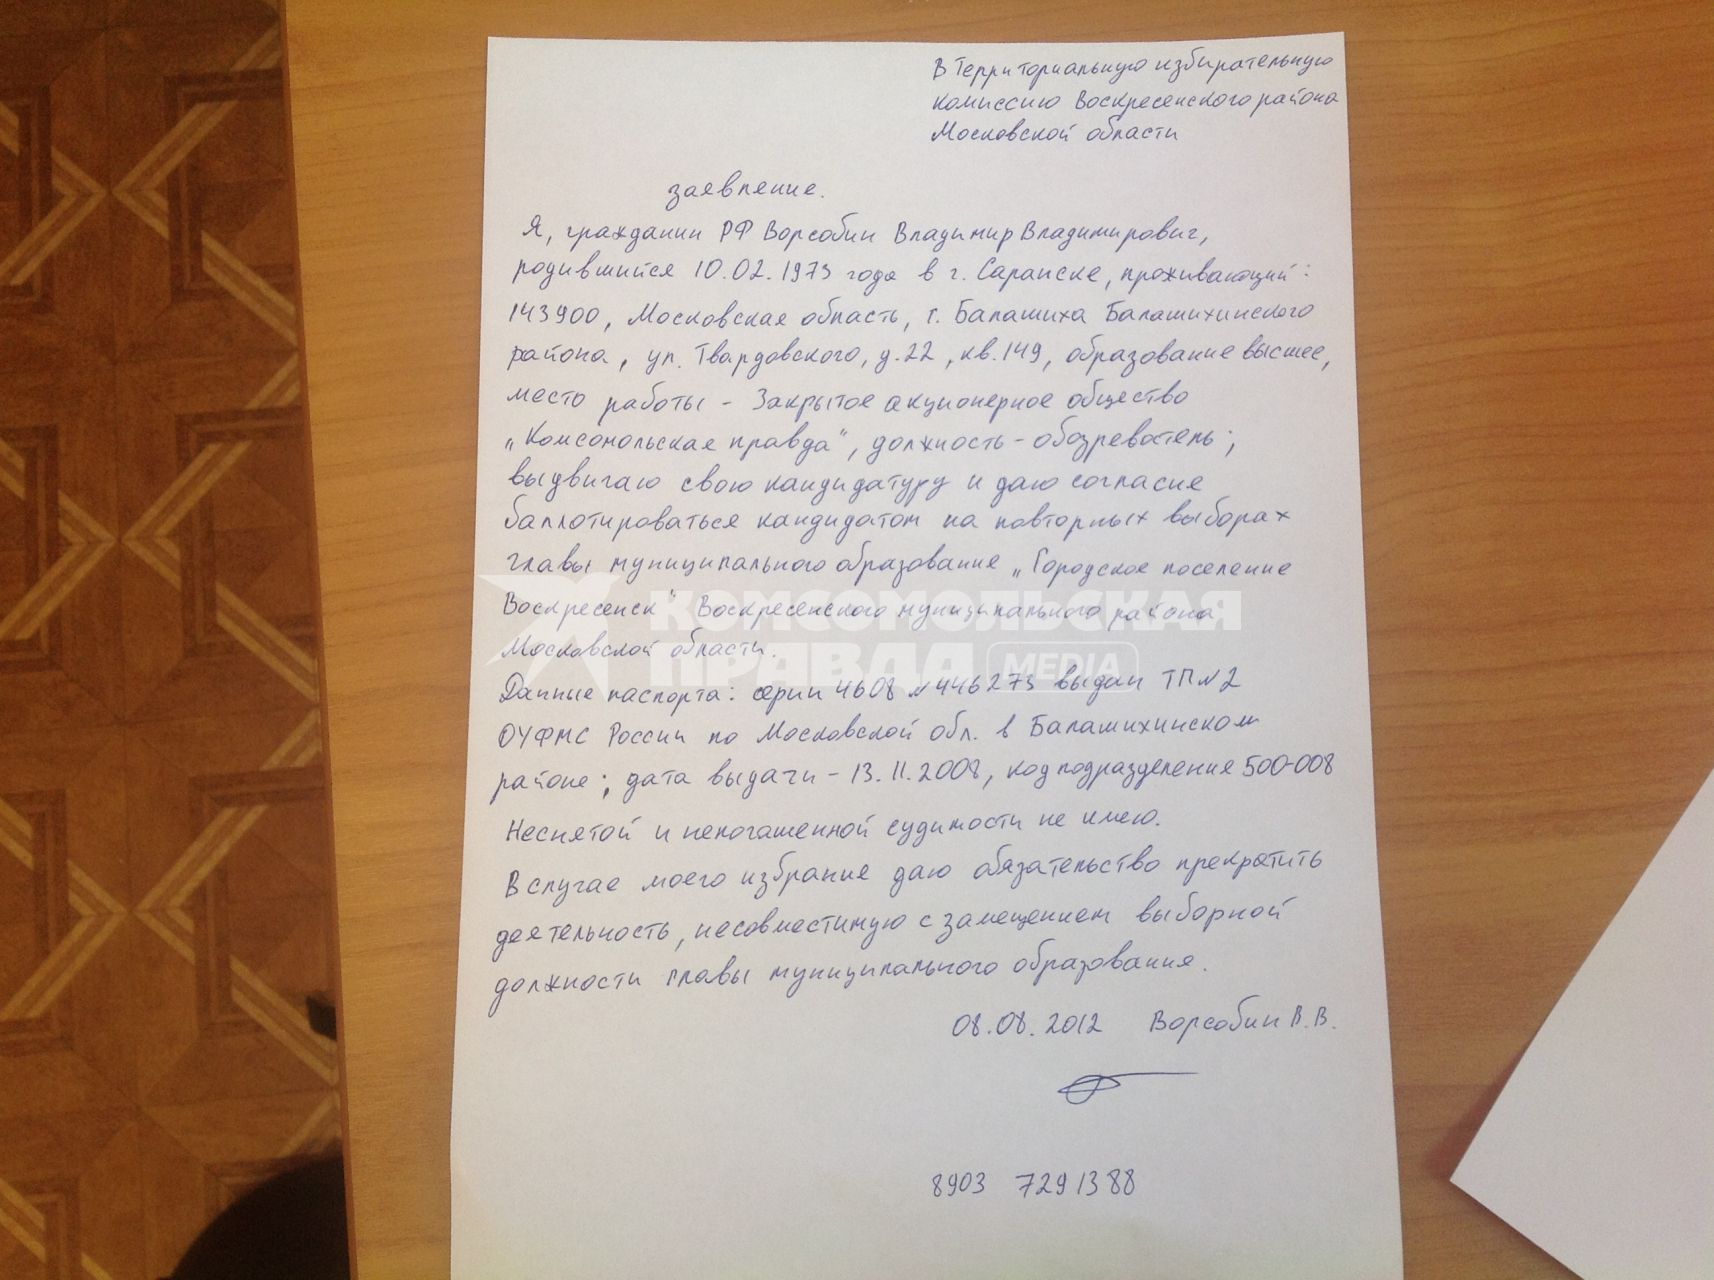 В Территориальную избирательную
комиссию Воскресенского района
Московской области
заявление.
Я, гражданин РФ Ворсобин Владимир Владимирович,
родившийся 10.02.1973 года в г. Саранске, проживающий:
143900, Московская область, г. Балашиха Балашихинского
района, ул. Твардовского, д.22, кв.149, образование высшее,
место работы - Закрытое акционерное общество
„Комсомольская правда", должность - обозреватель;
выдвигаю свою кандидатуру и даю согласие
баллотироваться кандидатом на повторных выборах
главы муниципального образование „Городское поселение
Воскресенск" Воскресенского муниципального района
Московской области.
КОМСОМОЛЬСКАЯ
ПРАВДА MEDIA
Данные паспорта: серии 4608 № 446273 выдан ТП №2
ОУФМС России по Московской обл. в Балашихинском
районе; дата выдачи - 13.11.2008, код подразделение 500-008
Неснятой и непогашенной судимости не имею.
В случае моего избрание даю обязательство прекратить
деятельность, несовместимую с замещением выборной
должности главы муниципального образования.
08.08.2012 Ворсобин В.В.
8903 7291388